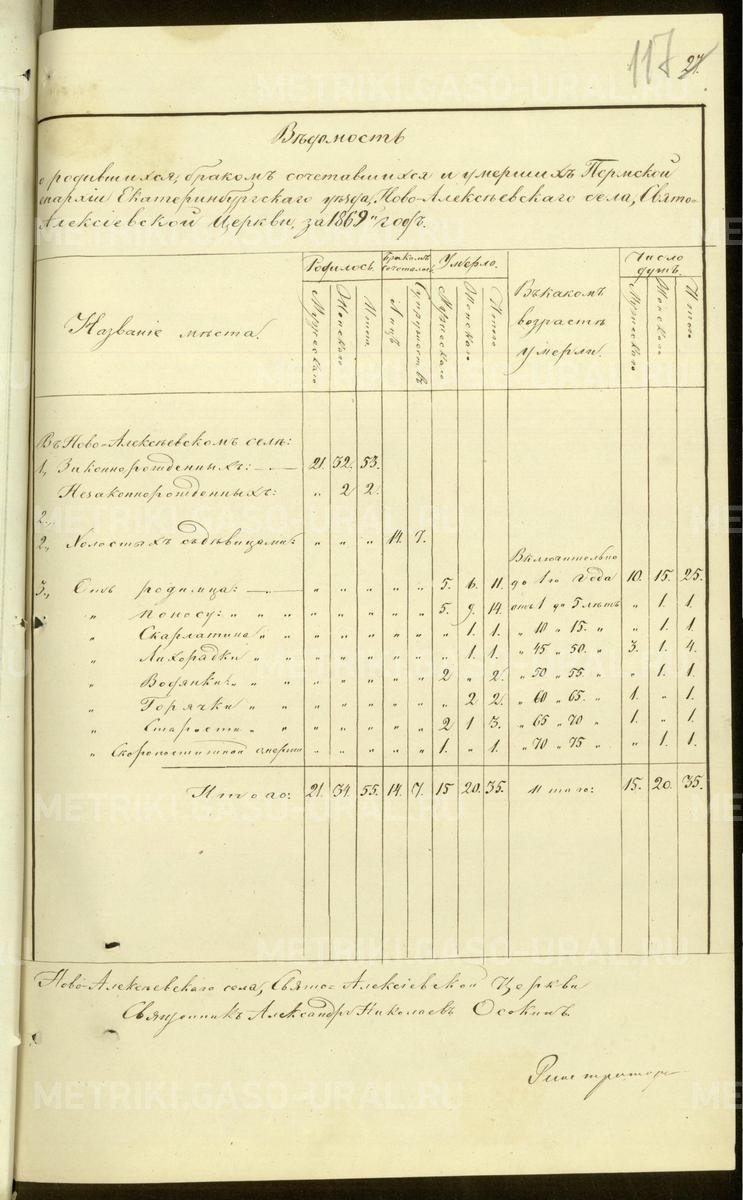 117 27.
Вѣдомость
о родившихся, бракомъ сочетавшихся и умершихъ Пермской
епархіи Екатеринбургскаго уѣзда, Ново-Алексѣевскаго села, Свято-
Алексіевской Церкви, за 1869й годъ.
Названіе мѣста. Родилось. Бракомъ сочеталось Умерло. Въ какомъ возрастѣ умерли. Число душъ.
Мужескаго Женскаго Итого Лицъ Супружествъ Мужескаго Женскаго Итого Мужескаго Женскаго Итого
Въ Ново-Алексѣевскомъ селѣ:
1., Законнорожденныхъ: 21. 32. 53.
Незаконнорожденныхъ: „ 2 2.
2.,
2., Холостыхъ съ дѣвицами: „ „ „ 14. 7.
Включительно
3., Отъ родимца: „ „ „ „ „ 5. 6. 11. до 1го года 10. 15. 25.
„ поносу: „ „ „ „ „ „ „ „ 5. 9. 14. отъ 1 до 5 лѣтъ „ 1. 1.
„ Скарлатина „ „ „ „ „ „ „ „ 1. 1. „ 10 „ 15. „ „ 1. 1.
„ Лихорадки „ „ „ „ „ „ „ „ 1. 1. „ 45 „ 50. „ 3. 1. 4.
„ Водянки: „ „ „ „ „ „ „ „ 2 „ 2. „ 50 „ 55. „ „ 1. 1.
„ Горячки „ „ „ „ „ „ „ „ 2 2. „ 60 „ 65. „ 1. „ 1.
„ Старости „ „ „ „ „ „ „ 2 1 3. „ 65 „ 70 „ 1. „ 1.
„ Скоропостижной смерти „ „ „ „ „ 1. „ 1. „ 70 „ 75 „ „ 1. 1.
Итого: 21. 34. 55. 14. 7. 15 20. 35. Итого: 15. 20. 35.
Ново-Алексѣевскаго села, Свято-Алексіевской Церкви
Священникъ Александръ Николаевъ Осокинъ
METRIKI.GASO-URAL.RU